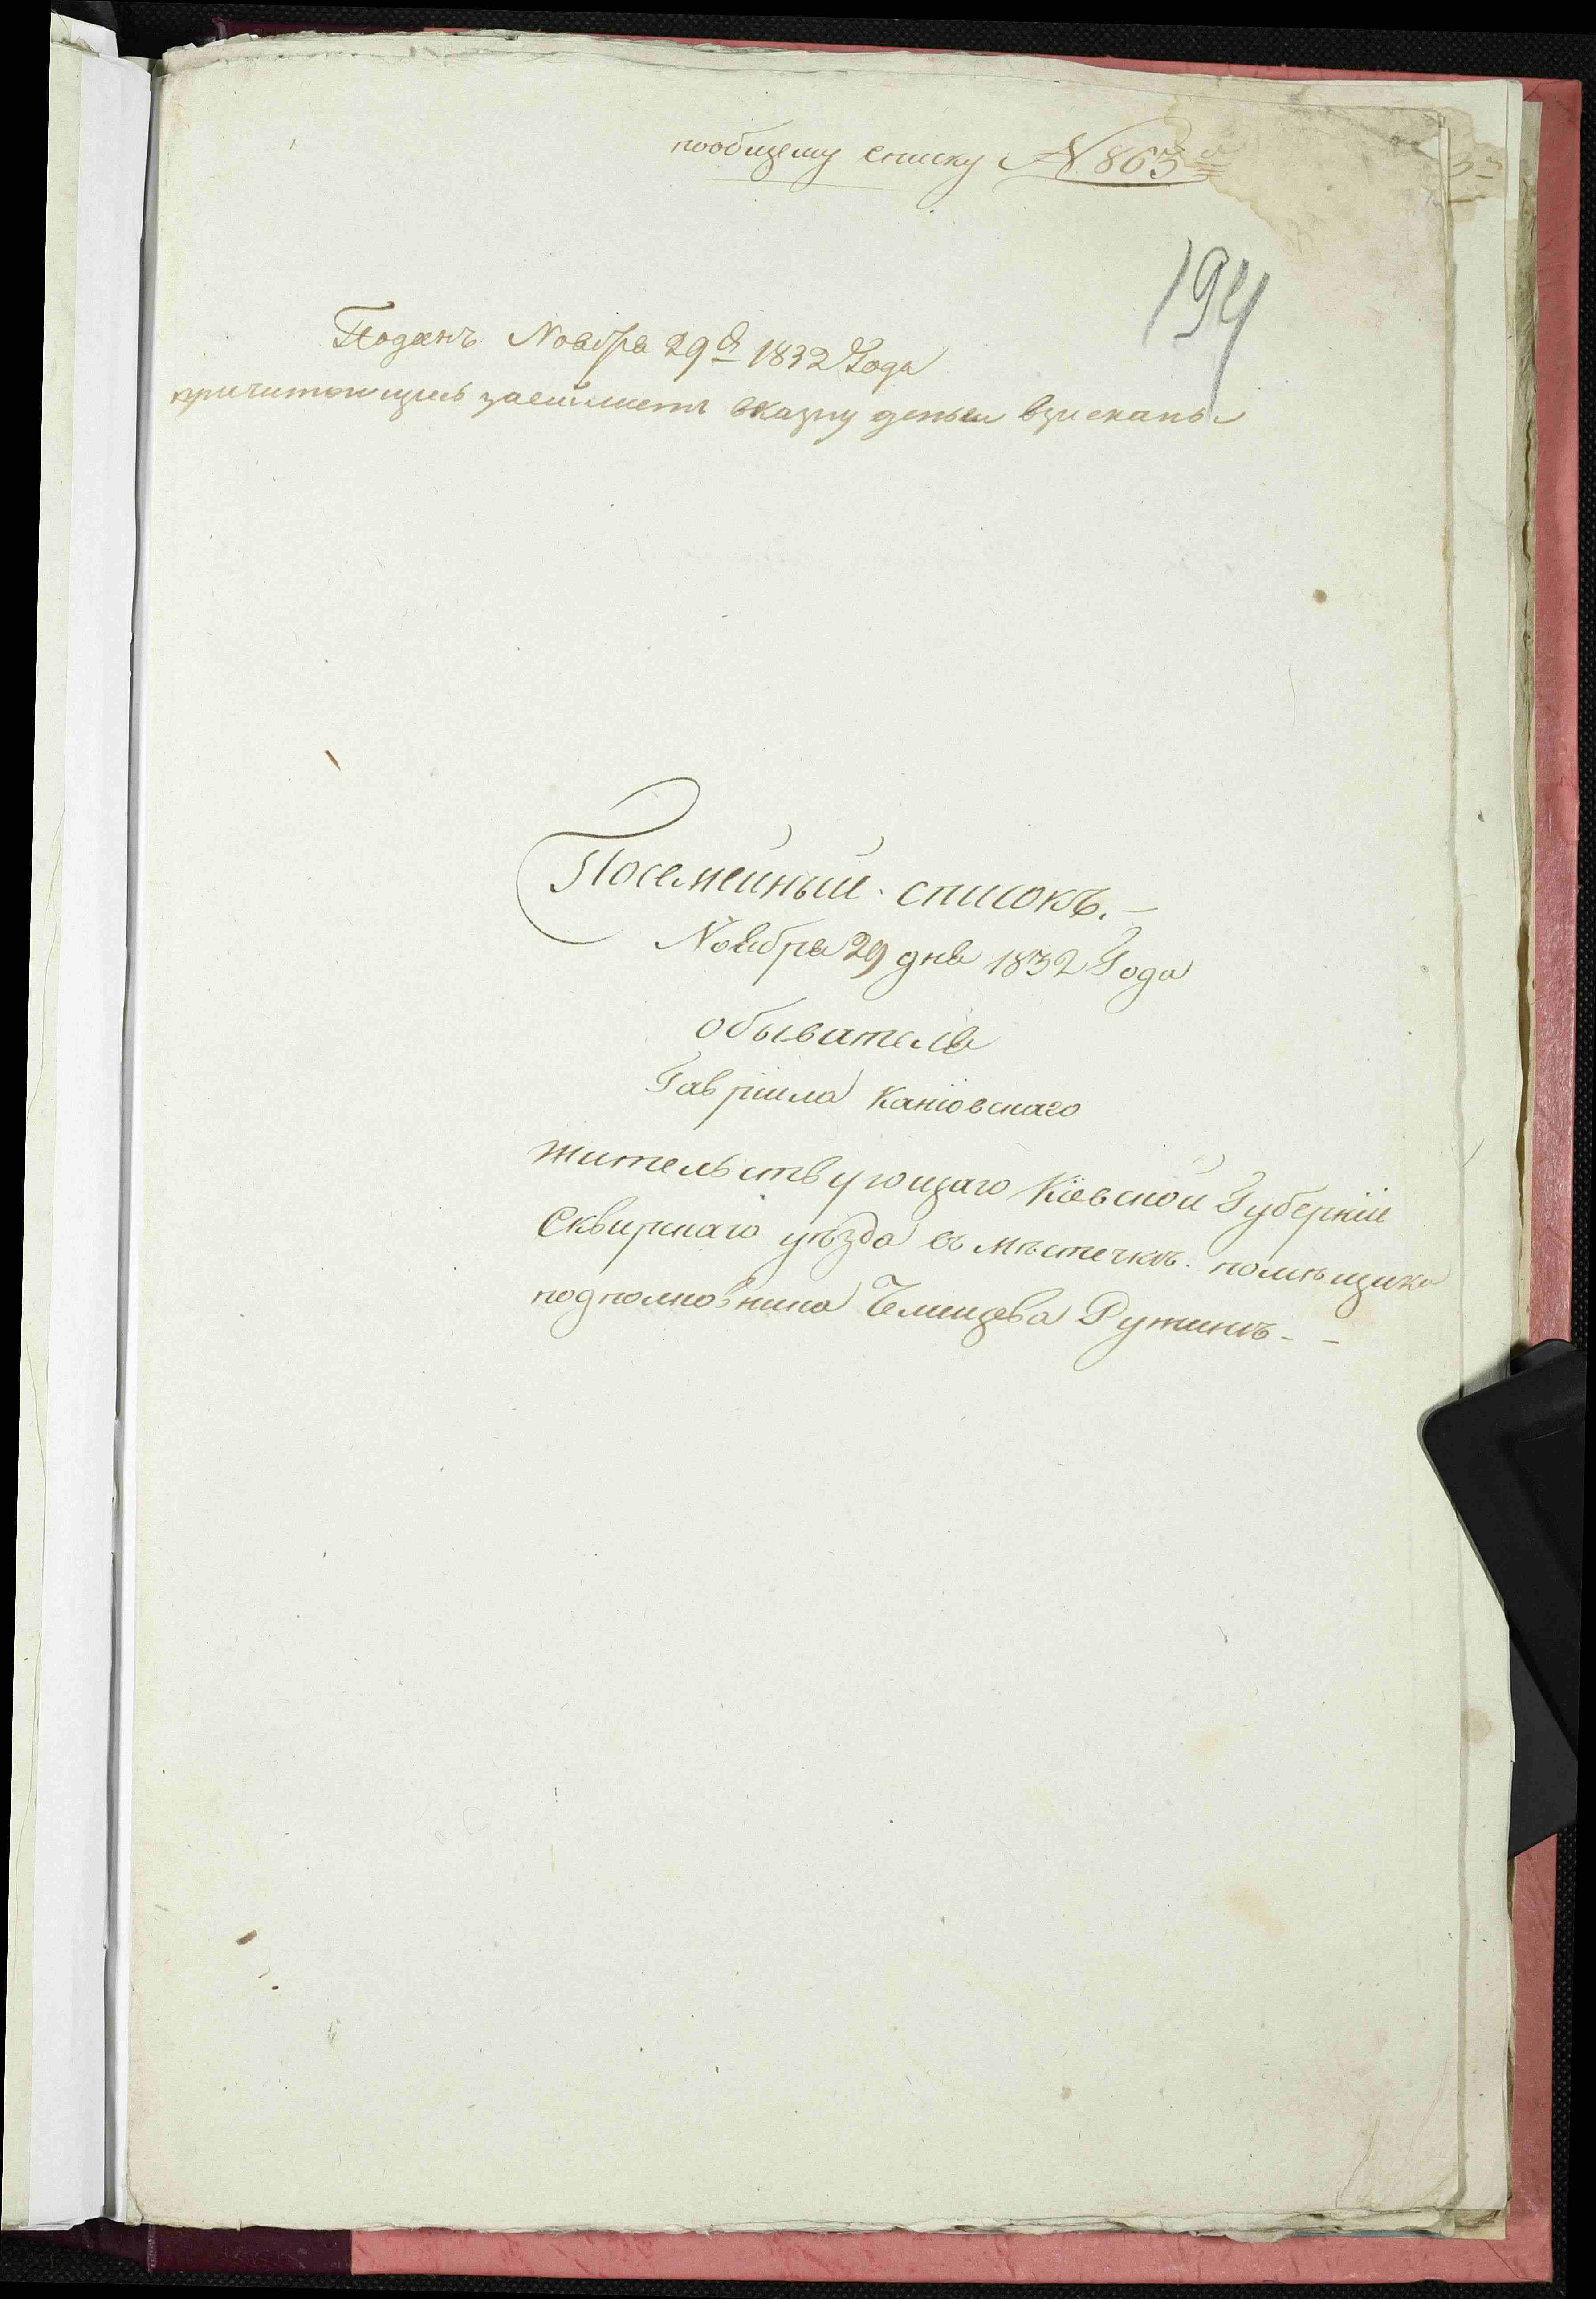 пообщему списку № 863й
194
Поданъ Ноября 29д 1832 Года
причитающиясь засей листъ вказну деньги взысканы
Посемейный списокъ. —
Ноября 29 дня 1832 Года
обывателя
Гавріила Каніовскаго
жительствующаго Кіевской Губерніи
Сквирскаго уѣзда въ мѣстечкѣ помѣщика
подполковника Ружинѣ - -